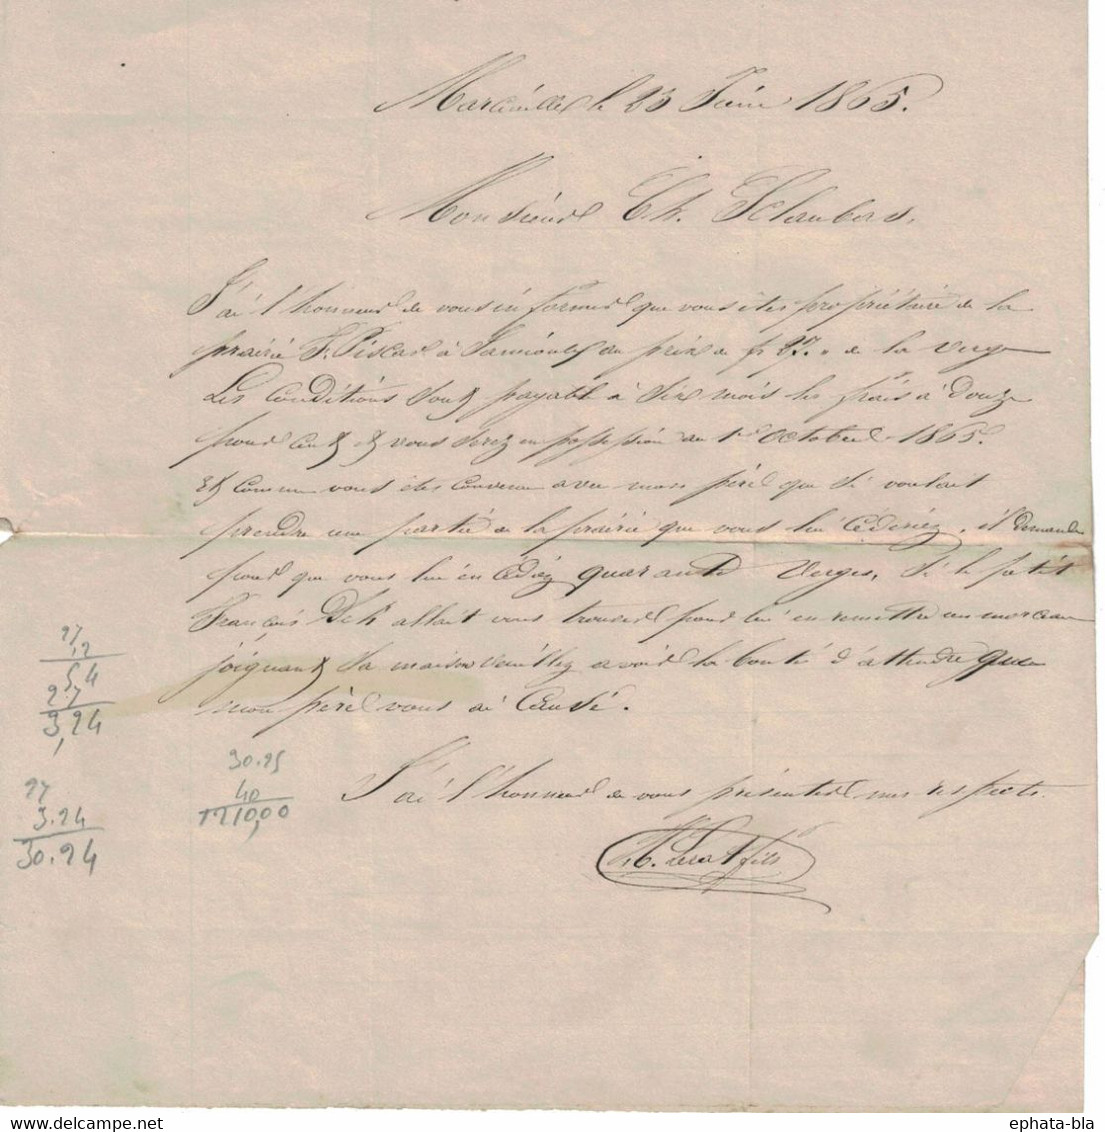 le 23 Juin 1865.
Monsieur Ch.
J'ai l'honneur de vous informer que vous êtes propriétaire de la
prairie à au prix de fr 27 " de la verge
Les Conditions sont payable à Six mois les frais à Douze
pour cent et vous serez en possession au 1er Octobre 1865.
Et comme vous êtes convenu avec mon père que si voulait
prendre une partie de la prairie que vous lui céderiez, il demande
pour que vous lui en cédiez quarante Verges, Si le petit
François allait vous trouver pour lui en remettre un morceau
joignant sa maison veuillez avoir la bonté d'attendre que
mon père vous ai causé.
J'ai l'honneur de vous présenter mes respects.
fils
27
,2
54
27
3,24
27
3.24
30.24
30.25
40
1210,00
ephata-bla